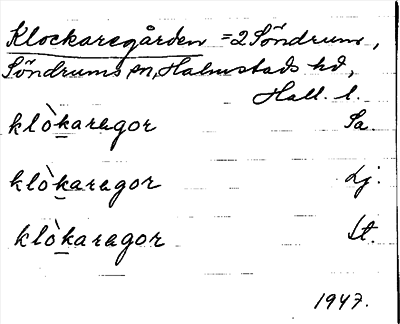 Klockaregården = 2 Söndrum,
Söndrums sn, Halmstads hd,
Hall. l.
klò̱karagor Sa.
klò̱karagor Lj.
klò̱karagor St.
1947.